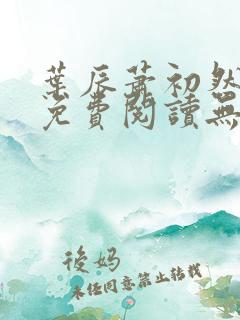 葉辰蕭初然
免費閱讀無
後媽
未任同意禁止轉載